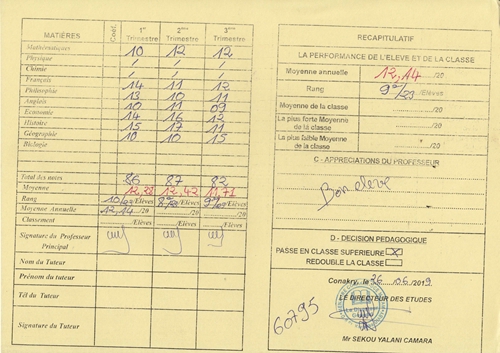 MATIÈRES Coef. 1er Trimestre 2ème Trimestre 3ème Trimestre
Mathématiques 10 12 12
Physique / / /
Chimie / / /
Français 14 11 12
Philosophie 13 10 11
Anglais 10 11 09
Economie 14 16 12
Histoire 15 17 11
Géographie 10 10 15
Biologie
Total des notes 86 87 82
Moyenne 12,28 12,42 11,71
Rang 10/23 Elèves 8e/23 Elèves 9e/23 Elèves
Moyenne Annuelle 12,14 /20 /20 /20
Classement /Elèves /Elèves /Elèves
Signature du Professeur
Principal
Nom du Tuteur
Prénom du tuteur
Tél du Tuteur
Signature du Tuteur
RECAPITULATIF
LA PERFORMANCE DE L'ELEVE ET DE LA CLASSE
Moyenne annuelle 12,14 /20
Rang 9e/23 /Elèves
Moyenne de la classe /20
La plus forte Moyenne
de la classe /20
La plus faible Moyenne
de la classe /20
C - APPRECIATIONS DU PROFESSEUR
Bon eleve
D - DECISION PEDAGOGIQUE
PASSE EN CLASSE SUPERIEURE X
REDOUBLE LA CLASSE
Conakry, le 26 06 /2019
LE DIRECTEUR DES ETUDES
60795
Mr SEKOU YALANI CAMARA